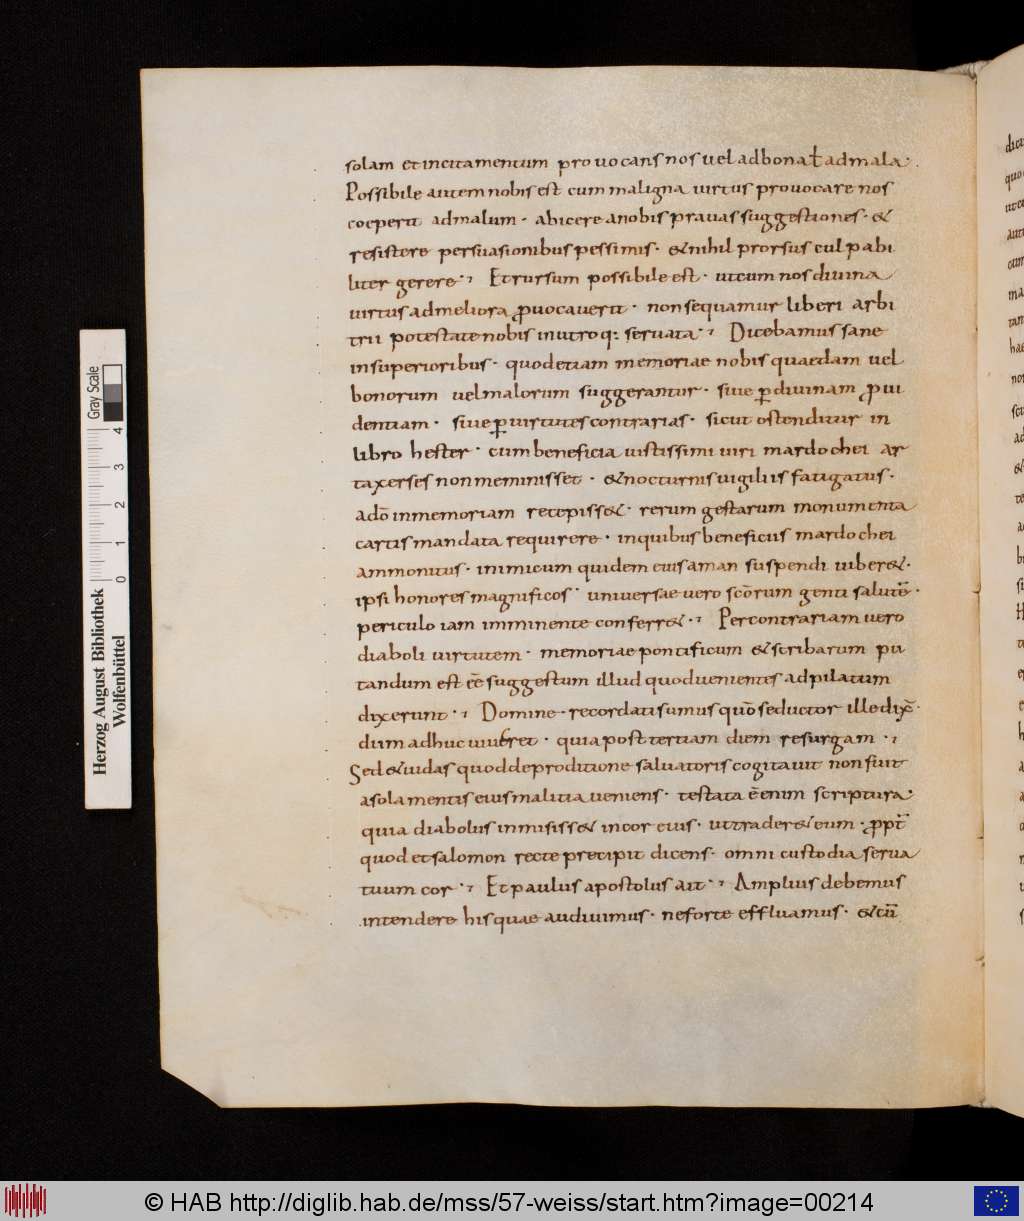 solam et incitamentum prouocans nos uel ad bona ł ad mala·
Possibile autem nobis est cum maligna uirtus prouocare nos
coeperit ad malum · abicere a nobis prauas suggestiones · &
resistere persuasionibus pessimis · & nihil prorsus culpabi
liter gerere ·, Et rursum possibile est · ut cum nos diuina
uirtus ad meliora ꝓuocauerit · non sequamur liberi arbi
trii potestate nobis in utroq: seruata ·, Dicebamus sane
in superioribus · quod etiam memoriae nobis quaedam uel
bonorum uel malorum suggerantur · siue ꝑ diuinam ꝓui
dentiam · siue ꝑ uirtutes contrarias · sicut ostenditur in
libro hester · cum beneficia iustissimi uiri mardochei ar
taxerses non meminisset · & nocturnis uigiliis fatigatus ·
a dō in memoriam recepiss& · rerum gestarum monumenta
cartis mandata requirere · in quibus beneficiis mardochei
ammonitus · inimicum quidem eius aman suspendi iuber& ·
ipsi honores magnificos · uniuersae uero scōrum genti salutē ·
periculo iam imminente conferr& ·, Per contrariam uero
diaboli uirtutem · memoriae pontificum & scribarum pu
tandum est eē suggestum illud quod uenientes ad pilatum
dixerunt ·, Domine · recordati sumus quō seductor ille dix̄ ·
dum adhuc uiueret · quia post tertiam diem resurgam ·,
Sed & iudas quod de proditione saluatoris cogitauit non fuit
a sola mentis eius malitia ueniens · testata ē enim scriptura ·
quia diabolus inmisiss& in cor eius · ut trader& eum · ꝓpt̄
quod et salomon recte precipit dicens · omni custodia serua
tuum cor ·, Et paulus apostolus ait ·, Amplius debemus
intendere his quae audiuimus · ne forte effluamus · & cū
Herzog August Bibliothek
Wolfenbüttel
Gray Scale
0 1 2 3 4
© HAB http://diglib.hab.de/mss/57-weiss/start.htm?image=00214